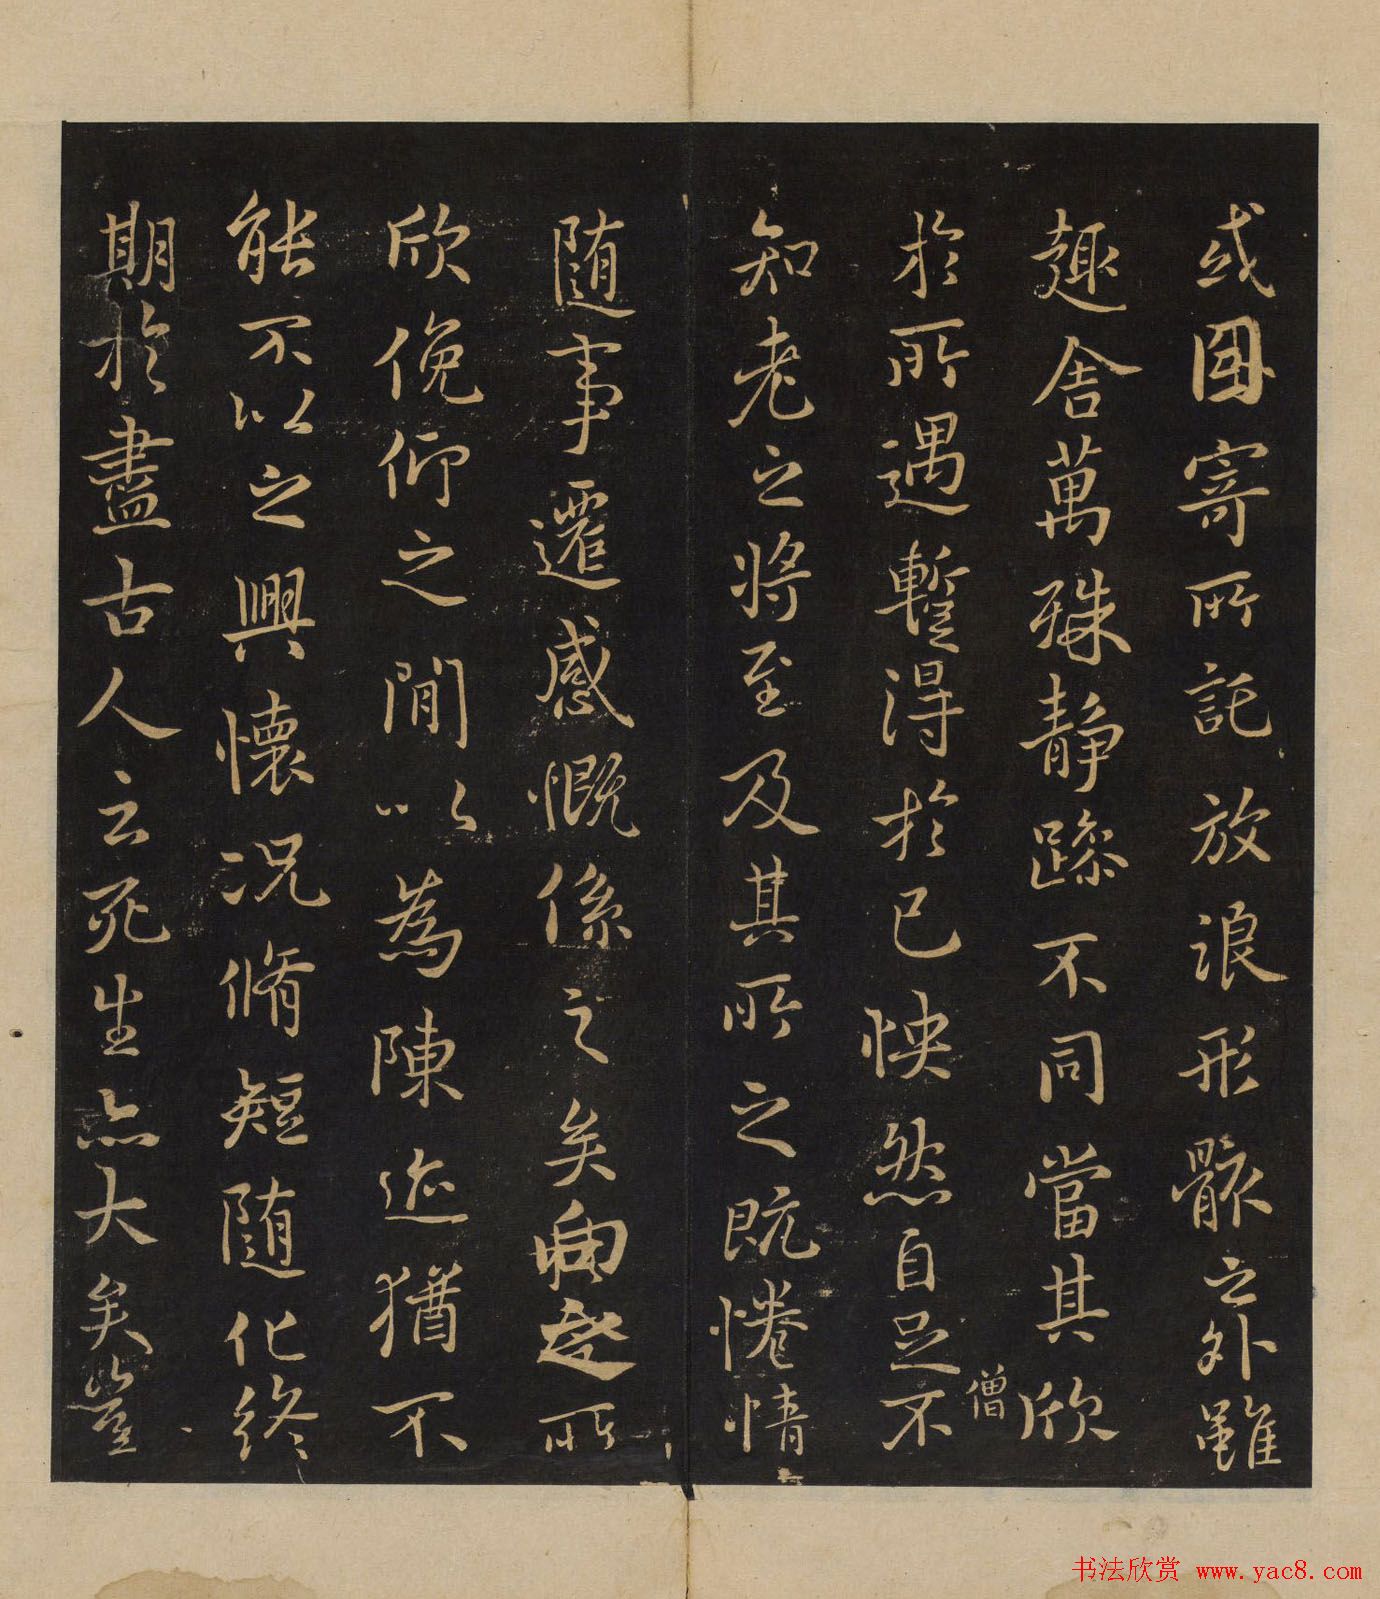 或因寄所託放浪形骸之外雖
趣舍萬殊静躁不同當其欣
於所遇暫得於己怏然自足不
僧
知老之将至及其所之既惓情
随事遷感慨係之矣向之所
欣俛仰之閒以為陳迹猶不
能不以之興懷况脩短随化終
期於盡古人云死生亦大矣豈
书法欣赏 www.yac8.com